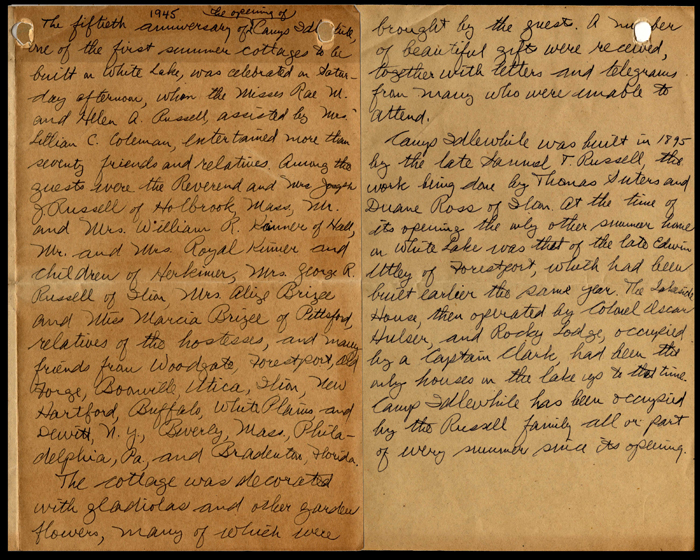 1945 the opening of
The fiftieth anniversary of Camp Idlewhile,
one of the first summer cottages to be
built on White Lake, was celebrated on Satur-
day afternoon, when the Misses Rae M.
and Helen A. Russell, assisted by Mrs.
Lillian C. Coleman, entertained more than
seventy friends and relatives. Among the
guests were the Reverend and Mrs. Joseph
J. Russell of Holbrook, Mass., Mr.
and Mrs. William R. Kinner of
Mr. and Mrs. Royal Kinner and
children of Herkimer, Mrs. George R.
Russell of Ilion, Mrs. Brizee
and Miss Marcia Brizee of Pittsford,
relatives of the hostesses, and many
friends from Woodgate, Forestport, Old
Forge, Boonville, Utica, Ilion, New
Hartford, Buffalo, White Plains, and
Dewitt, N.Y., Beverly, Mass., Phila-
delphia, Pa, and Bradenton, Florida.
The cottage was decorated
with gladiolas and other garden
flowers, many of which were
brought by the guest. A number
of beautiful gifts were received,
together with letters and telegrams
from many who were unable to
attend.
Camp Idlewhile was built in 1895
by the late Samuel T. Russell, the
work being done by Thomas Suters and
Duane Ross of Ilion. At the time of
its opening the only other summer home
on White Lake was that of the late Edwin
Utley of Forestport, which had been
built earlier the same year. The Lakeside
House, then operated by Colonel Oscar
Hulser, and Rocky Lodge, occupied
by a Captain Clark, had been the
only houses on the lake up to that time.
Camp Idlewhile has been occupied
by the Russell family all or part
of every summer since its opening.